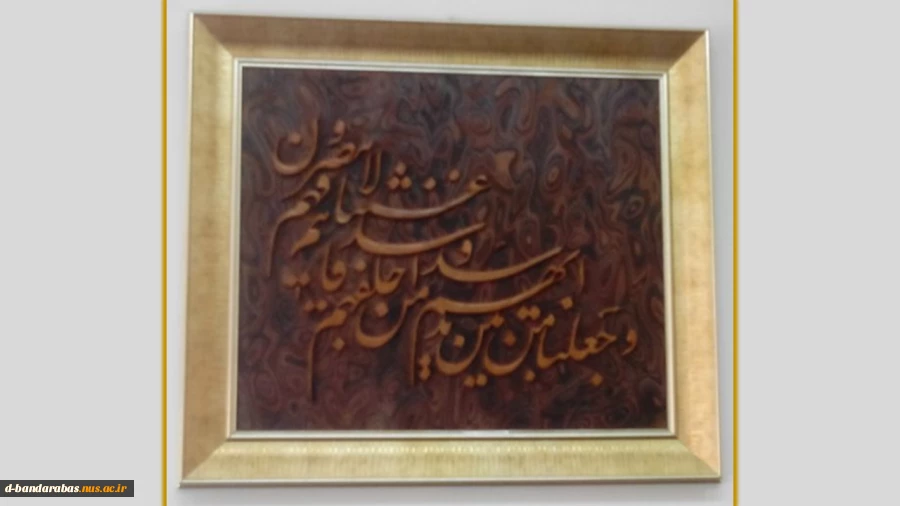 و جعلنا من بین ایدیهم سدا و من خلفهم سدا فاغشیناهم فهم لا یبصرون
d-bandarabas.nus.ac.ir